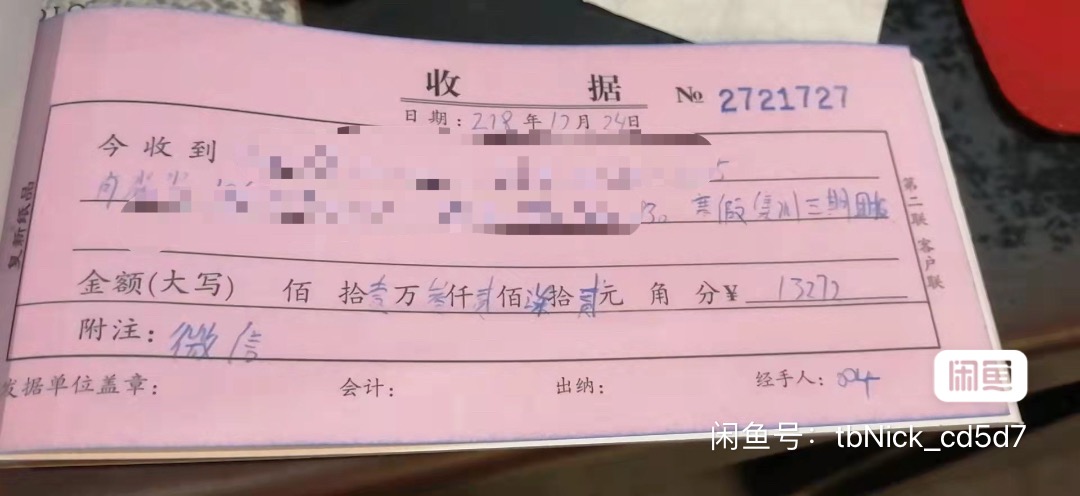 收 据 № 2721727
日期：218年12月24日
今收到
5
寒假集训三期团报
金额(大写) 佰 拾壹万叁仟贰佰柒拾贰元 角 分¥ 13272
附注：微信
发据单位盖章： 会计： 出纳： 经手人：004
第二联 客户联
复新纸品
闲鱼
闲鱼号：tbNick_cd5d7